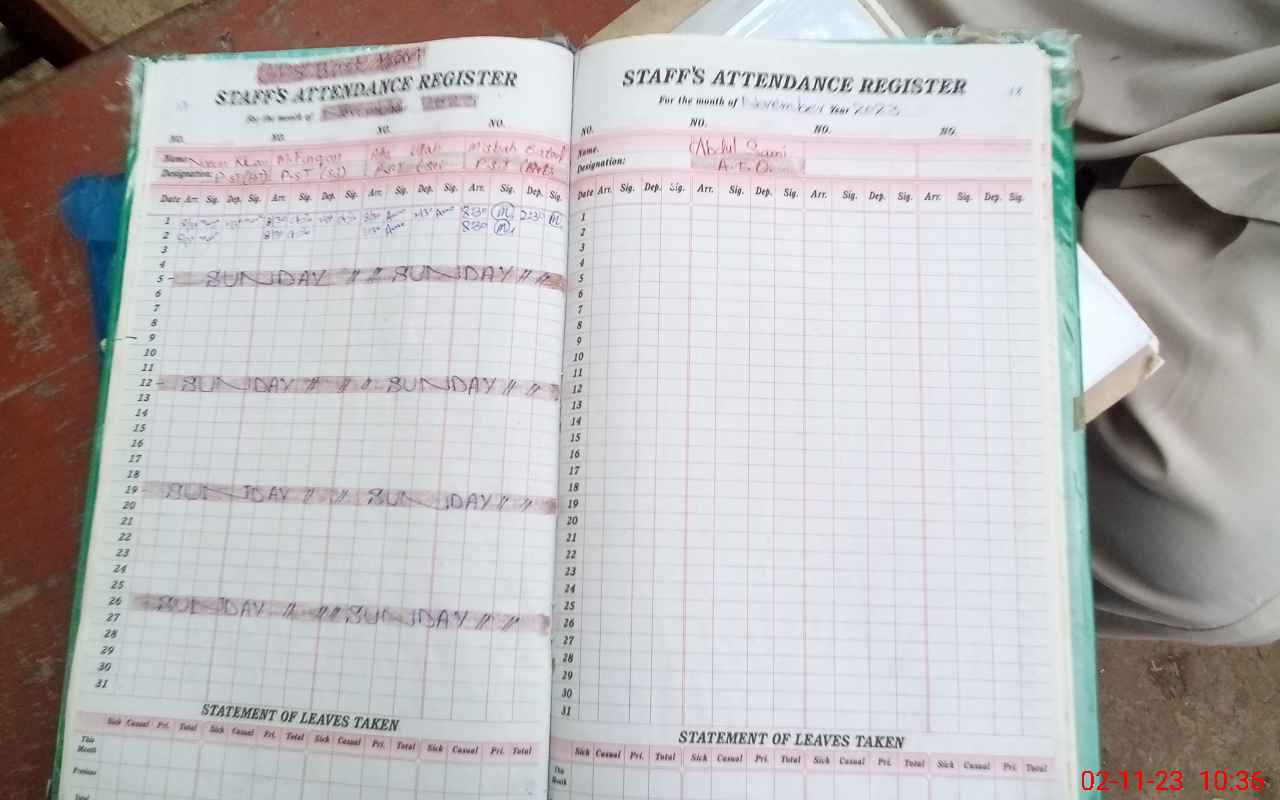 STAFF'S ATTENDANCE REGISTER
For the month of
NO. NO. NO. NO.
Name: Khan Ullah Misbah
Designation: P.S.T P.S.T
Date Arr. Sig. Dep. Sig. Arr. Sig. Dep. Sig. Arr. Sig. Dep. Sig. Arr. Sig. Dep. Sig.
1 8:30 8:30 2:30
2 8:30 8:30
3
4
5 SUNDAY " " SUNDAY " "
6
7
8
9
10
11
12 SUNDAY " " " SUNDAY " "
13
14
15
16
17
18
19 SUNDAY " " SUNDAY " "
20
21
22
23
24
25
26 SUNDAY " " " SUNDAY " "
27
28
29
30
31
STATEMENT OF LEAVES TAKEN
Sick Casual Pri. Total Sick Casual Pri. Total Sick Casual Pri. Total Sick Casual Pri. Total
This Month
Previous
Total
STAFF'S ATTENDANCE REGISTER
18
For the month of November Year 2023
NO. NO. NO. NO.
Name. Abdul Sami
Designation:
Date Arr. Sig. Dep. Sig. Arr. Sig. Dep. Sig. Arr. Sig. Dep. Sig. Arr. Sig. Dep. Sig.
1
2
3
4
5
6
7
8
9
10
11
12
13
14
15
16
17
18
19
20
21
22
23
24
25
26
27
28
29
30
31
STATEMENT OF LEAVES TAKEN
Sick Casual Pri. Total Sick Casual Pri. Total Sick Casual Pri. Total Sick Casual Pri. Total
This Month
02-11-23 10:36